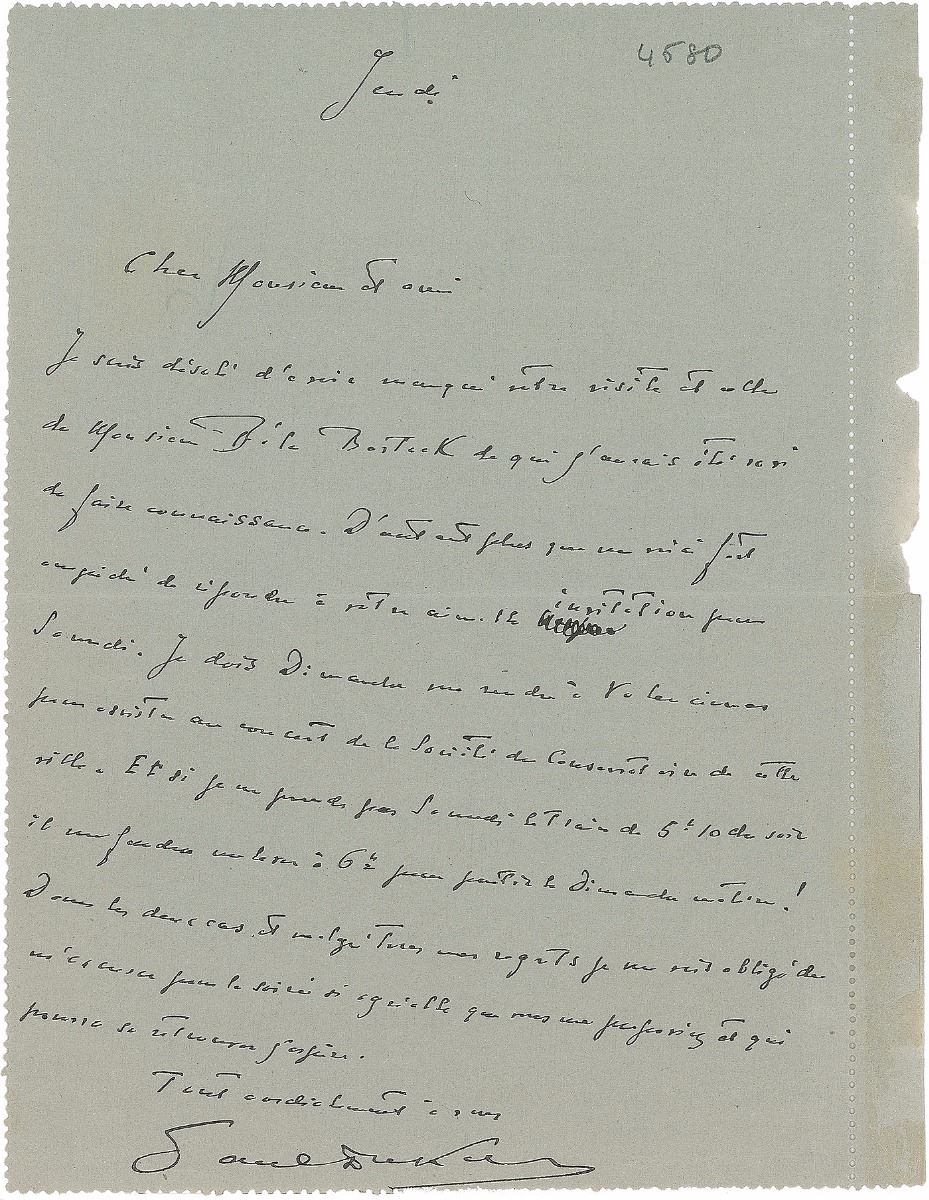 4580
Jeudi
Cher Monsieur et ami
Je suis désolé d'avoir manqué votre visite et celle
de Monsieur Béla Bartock de qui j'aurais été ravi
de faire connaissance. D'autant plus que me voici fort
empêché de répondre à votre aimable invitation pour
Samedi. Je dois Dimanche me rendre à Valenciennes
pour assister au concert de la Société du Conservatoire de cette
ville. Et si je ne prends pas Samedi le train de 5h 10 du soir
il me faudra me lever à 6h pour partir le Dimanche matin !
Dans les deux cas, et malgré tous mes regrets je me vois obligé de
m'excuser pour la soirée si agréable que vous me proposiez et qui
pourra se retrouver j'espère.
Tout cordialement à vous
Paul Dukas